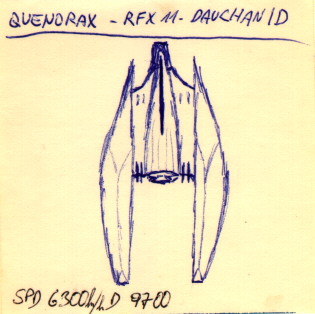 QUENDRAX - RFX 11 - DAUCHANID
SPD 6300 D 9700